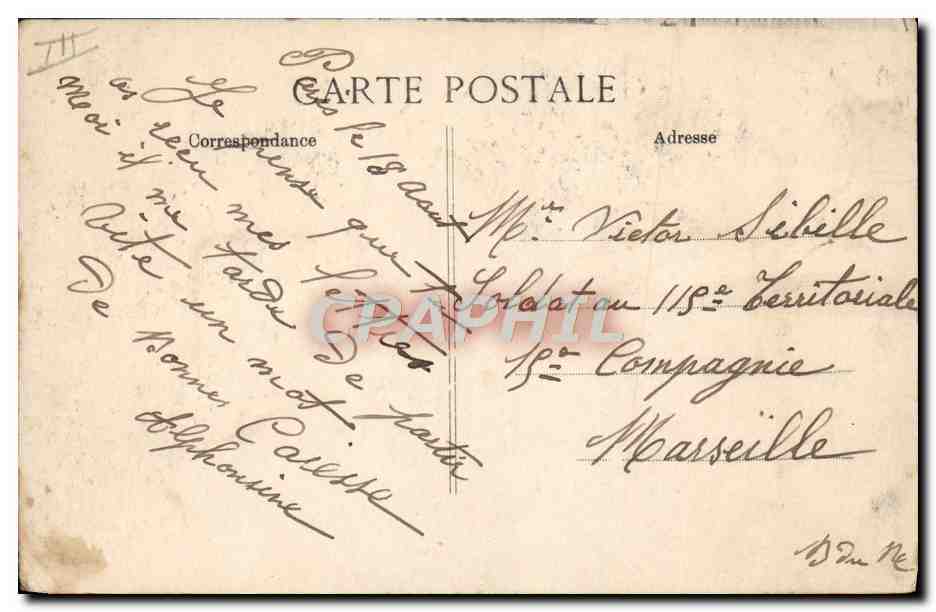 III
CARTE POSTALE
Correspondance
Adresse
Paris le 18 Aout
Je pense que tu
as reçu mes lettres
moi il me tarde de partir
Vite un mot
De Bonnes Caresse
Alphonsine
Mr Victor Sébille
Soldat au 115e Territoriale
15e Compagnie
Marseille
B du Ne
CPAPHIL